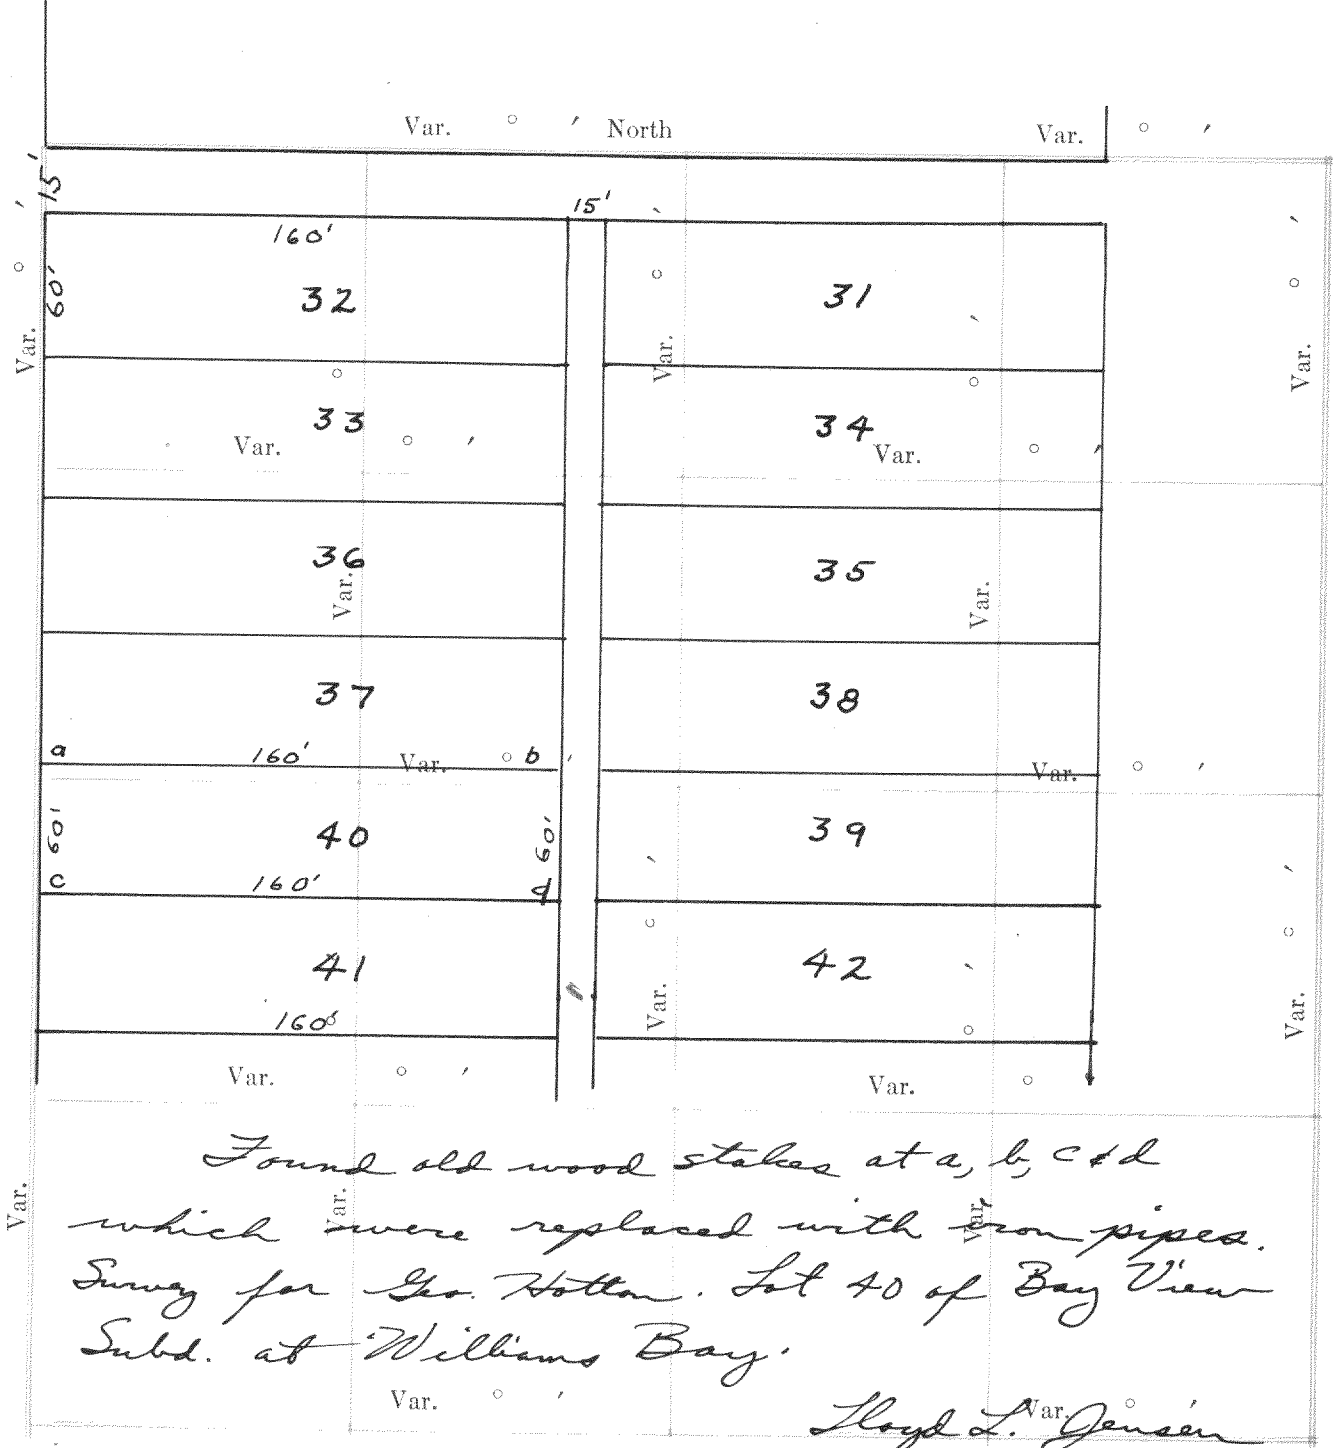 Var. ° ′ North Var. ° ′
15′
15′
160′
60′
32 31
Var. ° ′
Var. ° ′
Var. ° ′
33 34
Var. ° ′ Var. ° ′
36 35
Var. ° Var. ° ′
37 38
a 160′ Var. ° b ′ Var. ° ′
60′ 40 60′ 39
c 160′ d
41 42
Var. ° ′ Var. ° ′
160′
Var. ° ′ Var. ° ′
Found old wood stakes at a, b, c & d
Var. Var. Var.
which were replaced with iron pipes.
Survey for Geo. Hotton. Lot 40 of Bay View
Subd. at Williams Bay.
Var. ° ′ Var. ° ′
Lloyd L. Jensen